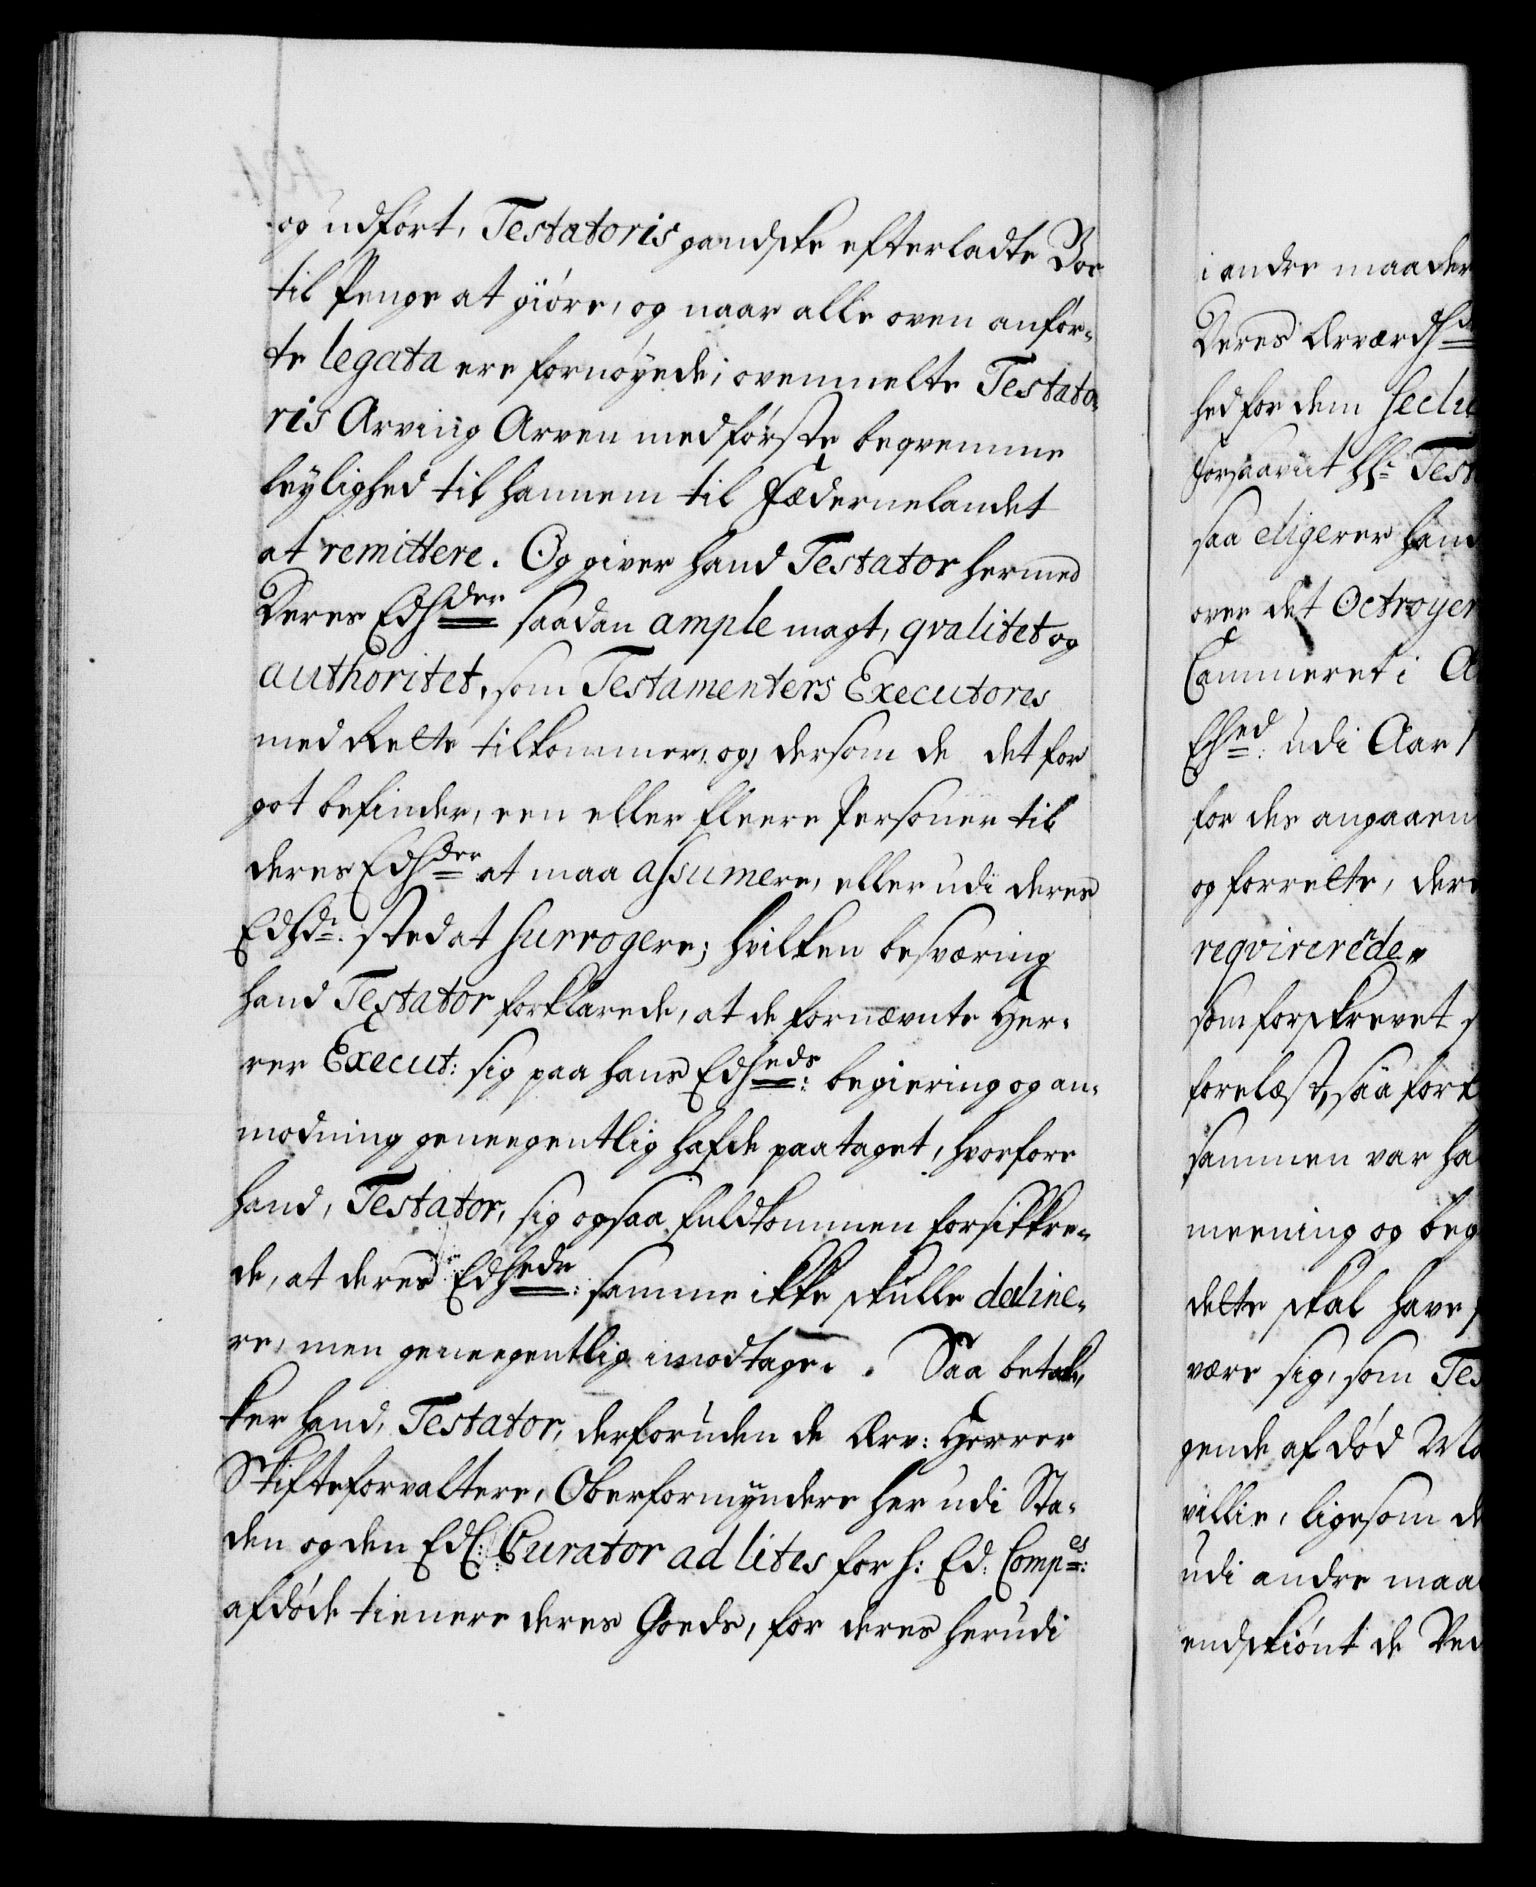 og udført, Testatoris gandske efterladte Boe
til Penge at giöre, og naar alle oven anför-
te legata ere fornöyede, ovenmelte Testato-
ris Arving Arven med förste beqvemme
leylighed til hannem til Fædernelandet
at remittere. Og giver hand Testator hermed
Deres Edhder saadan ample magt, qvalitet og
authoritet, som Testamenters Executores
med Rette tilkommer, og, dersom de det for
got befinder, een eller fleere Personer til
deres Edhder at maa assumere, eller udi deres
Edhdr. sted at surrogere; hvilken besværing
hand Testator forklarede, at de fornævnte Her-
rer Execut: sig paa hans Edheds: begiering og an-
modning geneegentlig hafde paataget, hvorfore
hand, Testator, sig ogsaa fuldkommen forsikkre-
de, at deres Edhedr: samme ikke skulle decline-
re, men geneegentlig imodtage. Saa betak-
ker hand, Testator, derforuden de Ærv: Herrer
Skifteforvaltere, Oberformyndere her udi Sta-
den og den Edl: Curator ad lites for h: Ed: Compes:
afdöde tienere deres Goeds, for deres herudi
i andre maader
Deres Ærværdhd
hed for dem seclu
forsaavit hl: Test
saa eligerer hand
over det Octroyer
Cammeret i A
Ehed: udi Aar 1
for des angaaen
og forrette, dere
reqvirerede.
som forskrevet s
forelæst, saa fork
sammen var ha
meening og beg
dette skal have
være sig, som Tes
gende af död
villie, ligesom de
udi andre maa
endskiönt de Ved